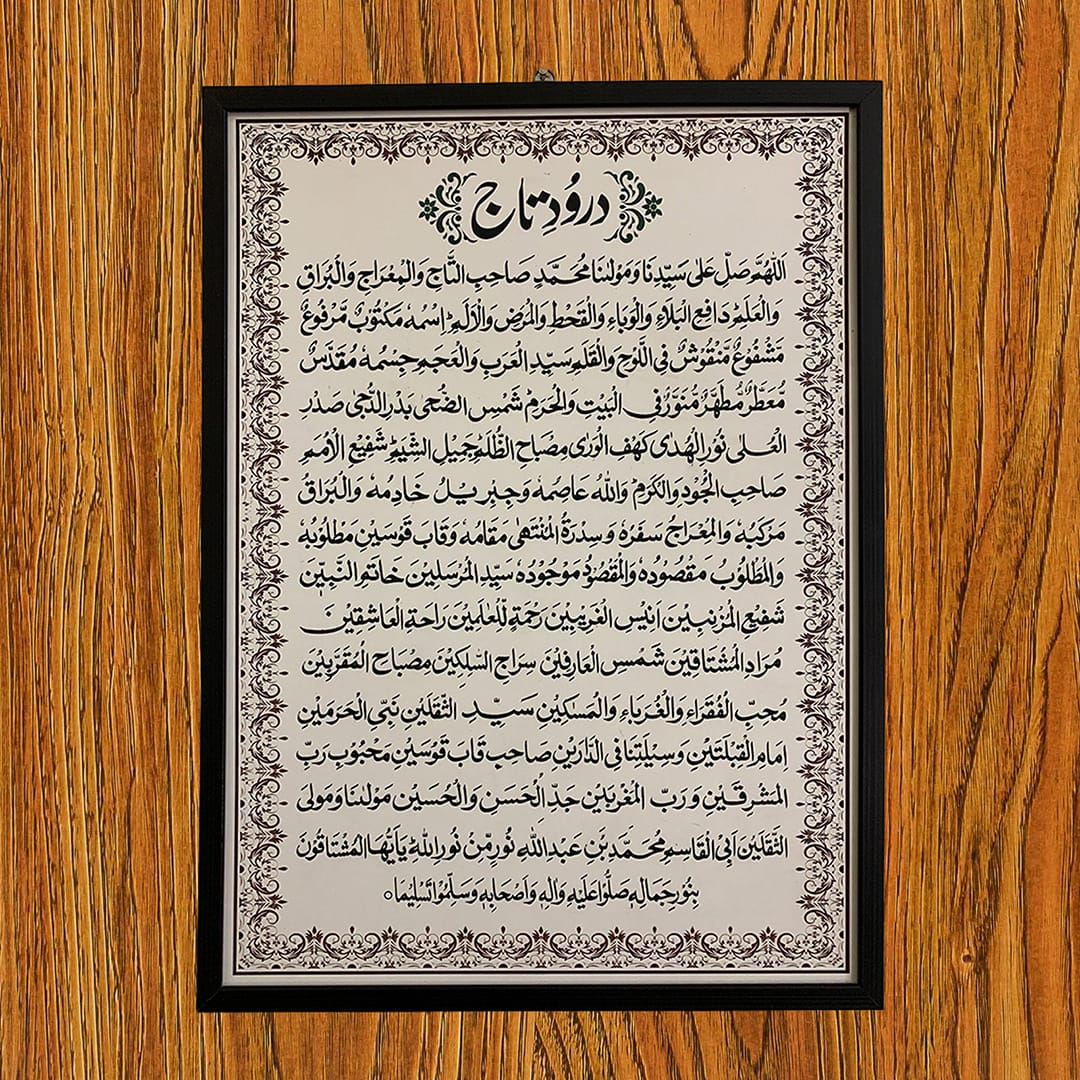 درُودِ تاج
اَللّٰهُمَّ صَلِّ عَلٰى سَيِّدِنَا وَمَوْلٰىنَا مُحَمَّدٍ صَاحِبِ التَّاجِ وَالْمِعْرَاجِ وَالْبُرَاقِ
وَالْعَلَمِ دَافِعِ الْبَلَاءِ وَالْوَبَاءِ وَالْقَحْطِ وَالْمَرَضِ وَالْاَلَمِ اِسْمُهٗ مَكْتُوْبٌ مَّرْفُوْعٌ
مَّشْفُوْعٌ مَّنْقُوْشٌ فِى اللَّوْحِ وَالْقَلَمِ سَيِّدِ الْعَرَبِ وَالْعَجَمِ جِسْمُهٗ مُقَدَّسٌ
مُّعَطَّرٌ مُّطَهَّرٌ مُّنَوَّرٌ فِى الْبَيْتِ وَالْحَرَمِ شَمْسِ الضُّحٰى بَدْرِ الدُّجٰى صَدْرِ
الْعُلٰى نُوْرِ الْهُدٰى كَهْفِ الْوَرٰى مِصْبَاحِ الظُّلَمِ جَمِيْلِ الشِّيَمِ شَفِيْعِ الْاُمَمِ
صَاحِبِ الْجُوْدِ وَالْكَرَمِ وَاللّٰهُ عَاصِمُهٗ وَجِبْرِيْلُ خَادِمُهٗ وَالْبُرَاقُ
مَرْكَبُهٗ وَالْمِعْرَاجُ سَفَرُهٗ وَسِدْرَةُ الْمُنْتَهٰى مَقَامُهٗ وَقَابَ قَوْسَيْنِ مَطْلُوْبُهٗ
وَالْمَطْلُوْبُ مَقْصُوْدُهٗ وَالْمَقْصُوْدُ مَوْجُوْدُهٗ سَيِّدِ الْمُرْسَلِيْنَ خَاتَمِ النَّبِيّٖنَ
شَفِيْعِ الْمُزْنِبِيْنَ اَنِيْسِ الْغَرِيْبِيْنَ رَحْمَةٍ لِّلْعٰلَمِيْنَ رَاحَةِ الْعَاشِقِيْنَ
مُرَادِ الْمُشْتَاقِيْنَ شَمْسِ الْعَارِفِيْنَ سِرَاجِ السّٰلِكِيْنَ مِصْبَاحِ الْمُقَرَّبِيْنَ
مُحِبِّ الْفُقَرَاءِ وَالْغُرَبَاءِ وَالْمَسٰكِيْنِ سَيِّدِ الثَّقَلَيْنِ نَبِيِّ الْحَرَمَيْنِ
اِمَامِ الْقِبْلَتَيْنِ وَسِيْلَتِنَا فِى الدَّارَيْنِ صَاحِبِ قَابَ قَوْسَيْنِ مَحْبُوْبِ رَبِّ
الْمَشْرِقَيْنِ وَرَبِّ الْمَغْرِبَيْنِ جَدِّ الْحَسَنِ وَالْحُسَيْنِ مَوْلٰىنَا وَمَوْلَى
الثَّقَلَيْنِ اَبِى الْقَاسِمِ مُحَمَّدِ بْنِ عَبْدِ اللّٰهِ نُوْرٍ مِّنْ نُوْرِ اللّٰهِ يٰاَيُّهَا الْمُشْتَاقُوْنَ
بِنُوْرِ جَمَالِهٖ صَلُّوْا عَلَيْهِ وَاٰلِهٖ وَاَصْحَابِهٖ وَسَلِّمُوْا تَسْلِيْمًا ○